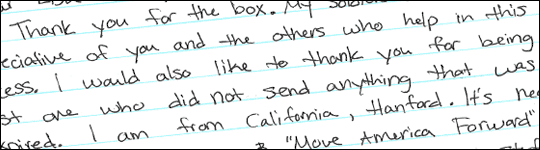 Thank you for the box. My
eciative of you and the others who help in this
ess. I would also like to thank you for being
st one who did not send anything that was
pired. I am from California, Hanford. It's
"Move America Forward"